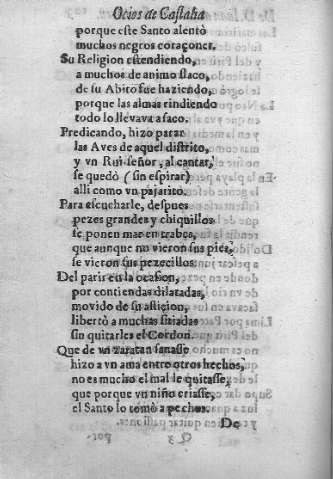 Ocios de Castalia
porque este Santo alentò
muchos negros coraçones.
Su Religion estendiendo,
a muchos de animo flaco,
de su Abito fue haziendo,
porque las almas rindiendo
todo lo llevava a saco.
Predicando, hizo parar
las Aves de aquel distrito,
y vn Rui-señor, al cantar,
se quedò (sin espirar)
alli como vn pajarito.
Para escucharle, despues
pezes grandes y chiquillos
se ponen mar en traves,
que aunque no vieron sus pies,
se vieron sus pezecillos.
Del paris en la ocasion,
por contiendas dilatadas,
movido de su aficion,
libertò a muchas sitiadas
sin quitarles el Cordon.
Que de vn zaratan sanasse
hizo a vn ama entre otros hechos,
no es mucho el mal le quitasse,
que porque vn niño criasse,
el Santo lo tomò a pechos.
De